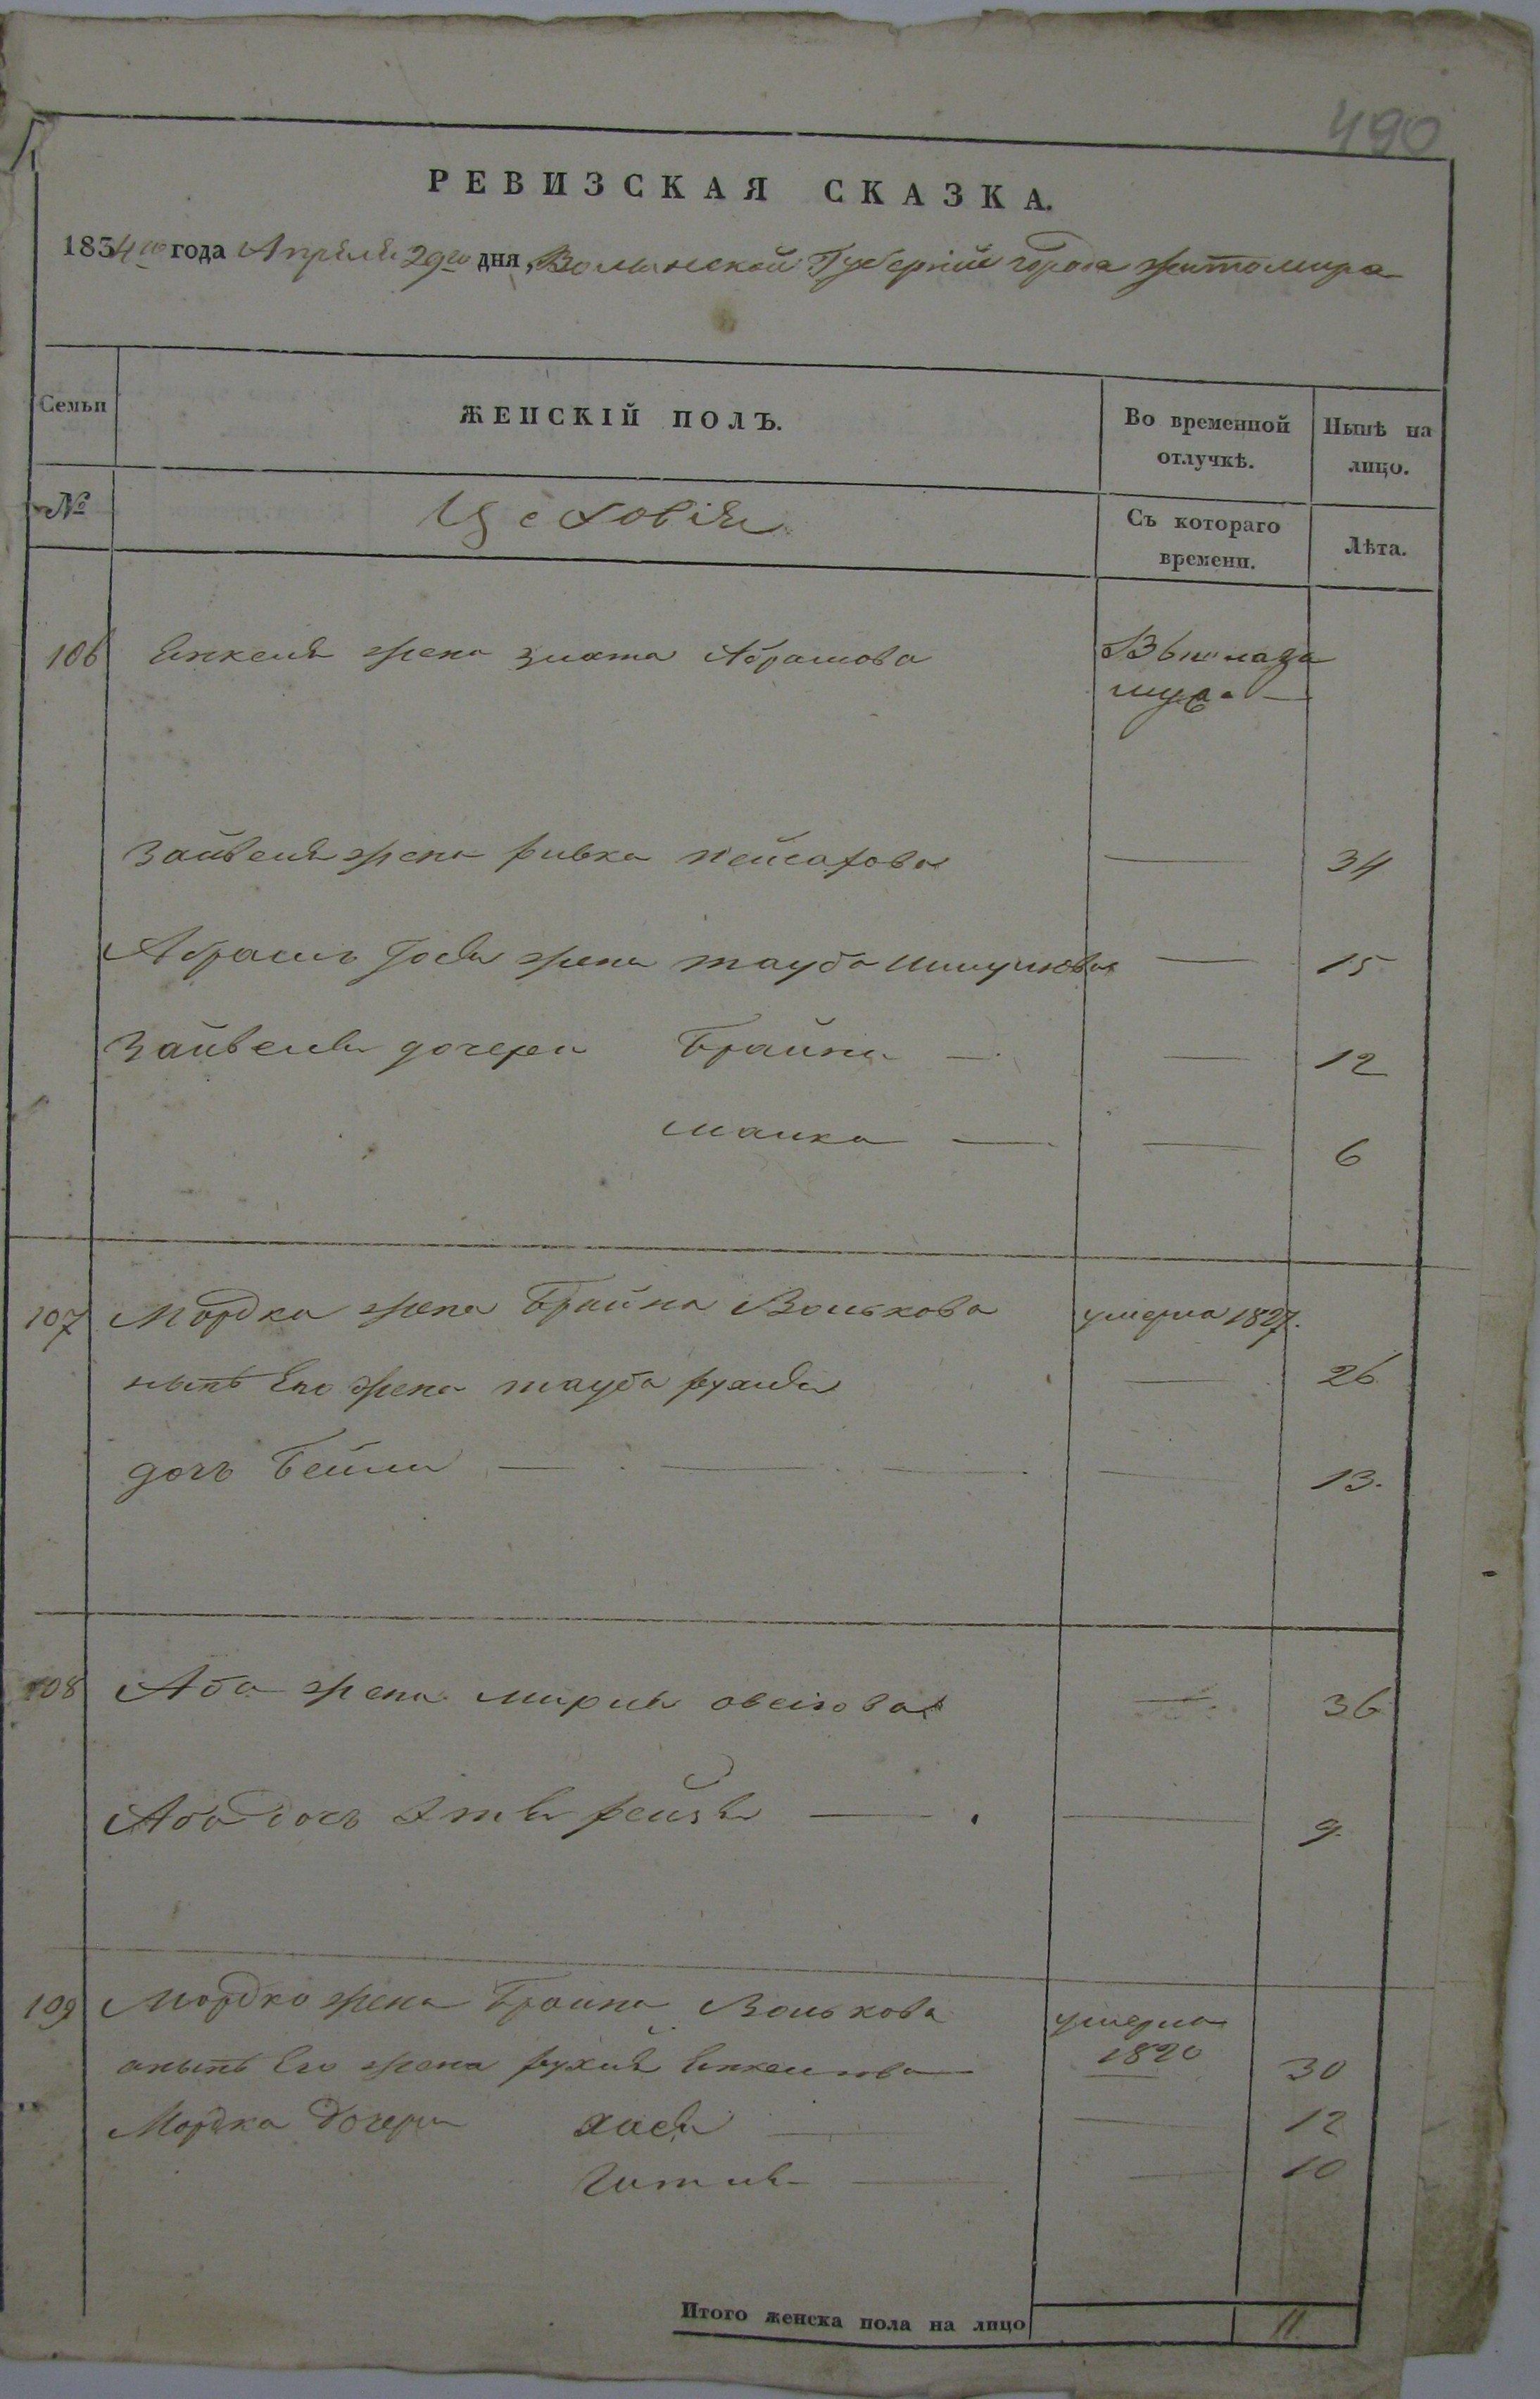 490
РЕВИЗСКАЯ СКАЗКА.
1834го года Апреля 29го дня, Волынской Губернии города Житомира
Семьи
ЖЕНСКІЙ ПОЛЪ.
Во временной отлучкѣ.
Нынѣ на лицо.
№
Цеховіи
Съ котораго времени.
Лѣта.
106 Янкеля жена злота Абрамова
Зайвеля жена ривка пейсахова — 34
Абрама жена тауба — 15
Зайвеля дочери Брайна — — 12
малка — — 6
107 Мордка жена Брайна Волькова умерла 1827.
нынѣ Его жена тауба рухля — 26
дочь Бейла — — — — 13.
108 Аба жена мирля — 36
Аба дочь рейзя — — 9.
109 Мордко жена Брайна Волькова умерла 1820
анынѣ Его жена рухля Янкелева — 30
Мордка дочери хася — — 12
Гитля — — 10
Итого женска пола на лицо 11.